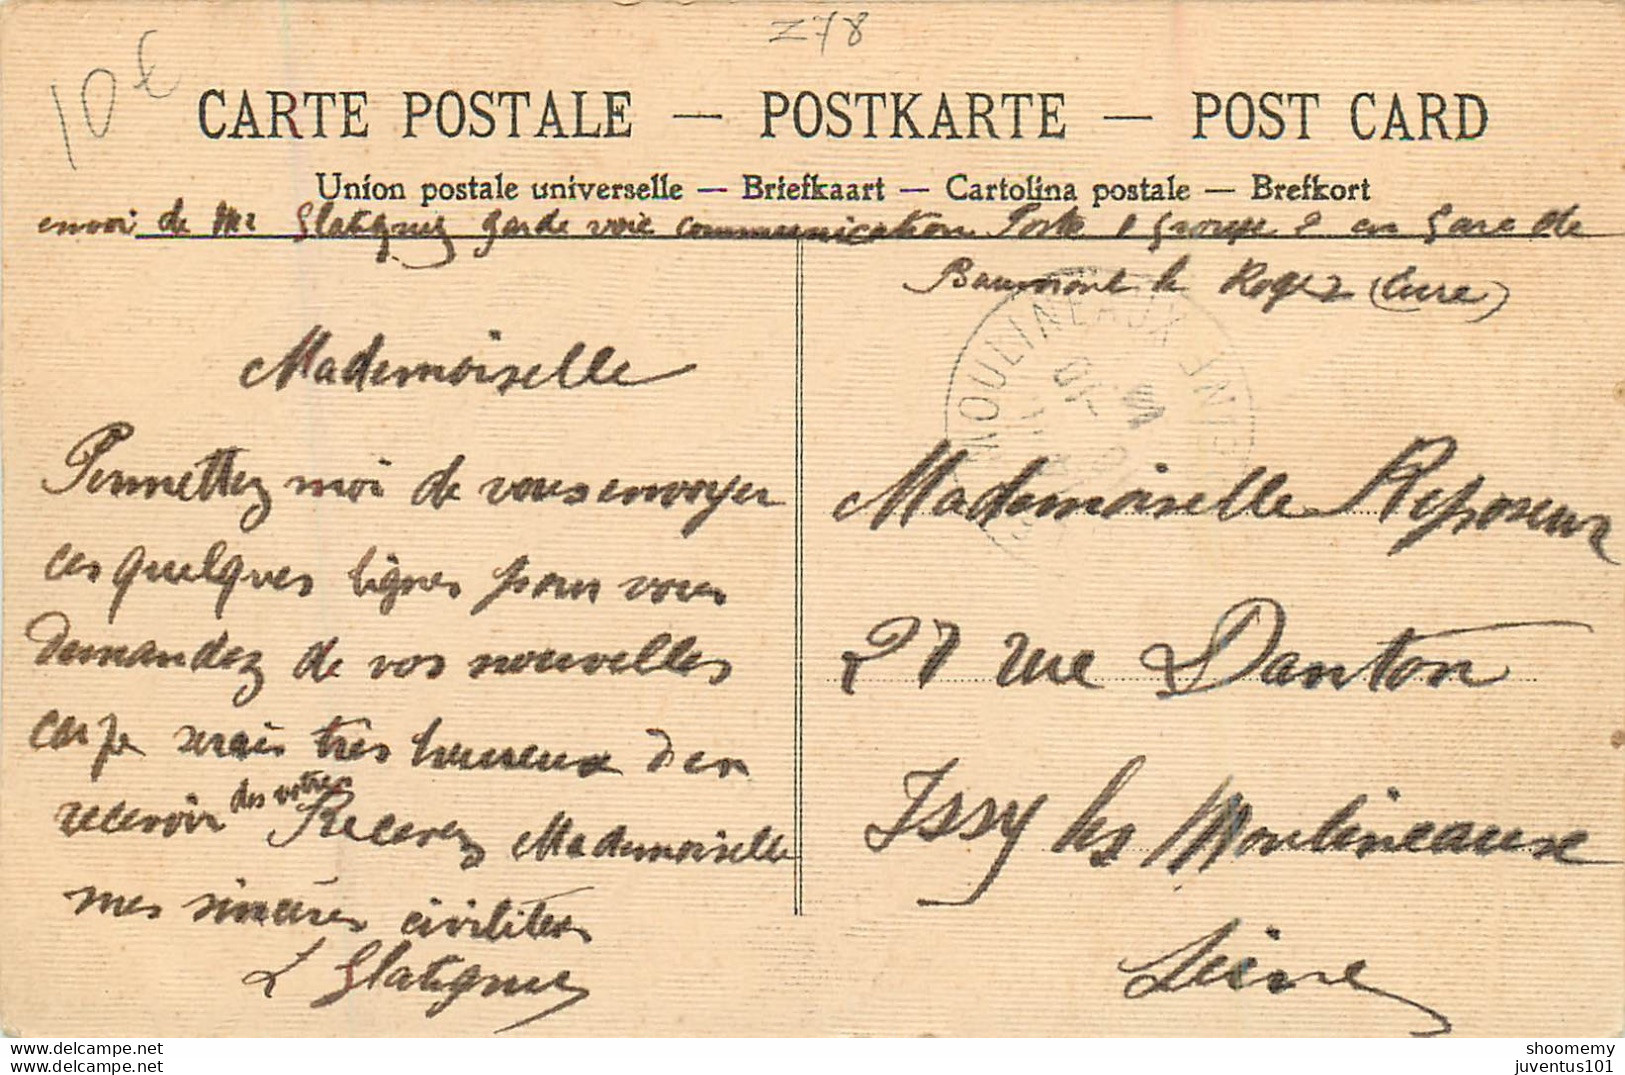 Z78
10€
CARTE POSTALE — POSTKARTE — POST CARD
Union postale universelle — Briefkaart — Cartolina postale — Brefkort
envoi de Mr Glatigny garde voie communication Poste 1 Groupe 2 en Gare de
Beaumont le Roger (Eure)
MOULINEAUX
Mademoiselle
Permettez moi de vous envoyer
ces quelques lignes pour vous
demandez de vos nouvelles
car je serais très heureux d'en
recevoir des votres Recevez Mademoiselle
mes sincères civilitées
L Glatigny
Mademoiselle Reposeur
27 rue Danton
Issy les Moulineaux
Seine
delcampe.net
shoomemy
juventus101